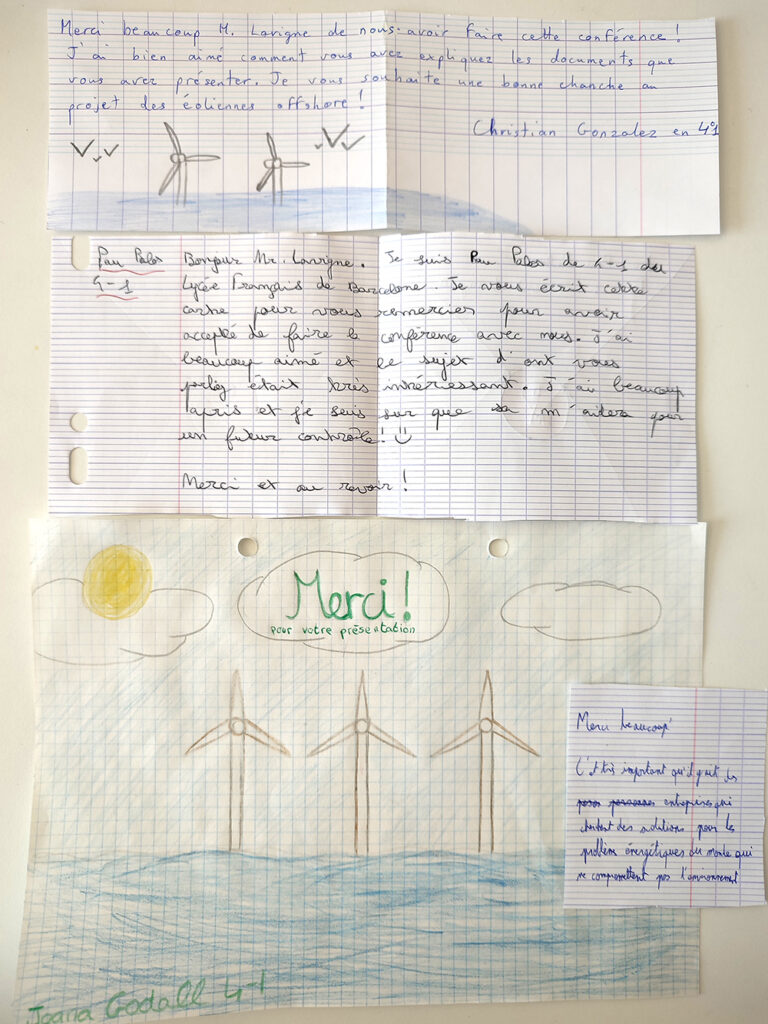 Merci beaucoup M. Lavigne de nous avoir faire cette conférence !
J'ai bien aimé comment vous avez expliquez les documents que
vous avez présenter. Je vous souhaite une bonne chanche au
projet des éoliennes offshore !
Christian Gonzalez en 4°1
Pau Palos
4-1
Bonjour Mr. Lavigne. Je suis Pau Palos de 4-1 du
Lycée Français de Barcelone. Je vous écrit cette
carte pour vous remercier pour avoir
accepté de faire la conférence avec nous. J'ai
beaucoup aimé et le sujet d'ont vous
parlez était très intériessant. J'ai beaucoup
apris et je suis sur que sa m'aidera pour
un futeur contrôle! ☺
Merci et au revoir !
Merci!
pour votre présentation
Joana Godall 4-1
Merci beaucoup
C'est très important qu'il y ait des
entreprises qui
cherchent des solutions pour les
problème énergétiques du monde qui
ne compromettent pas l'environnement